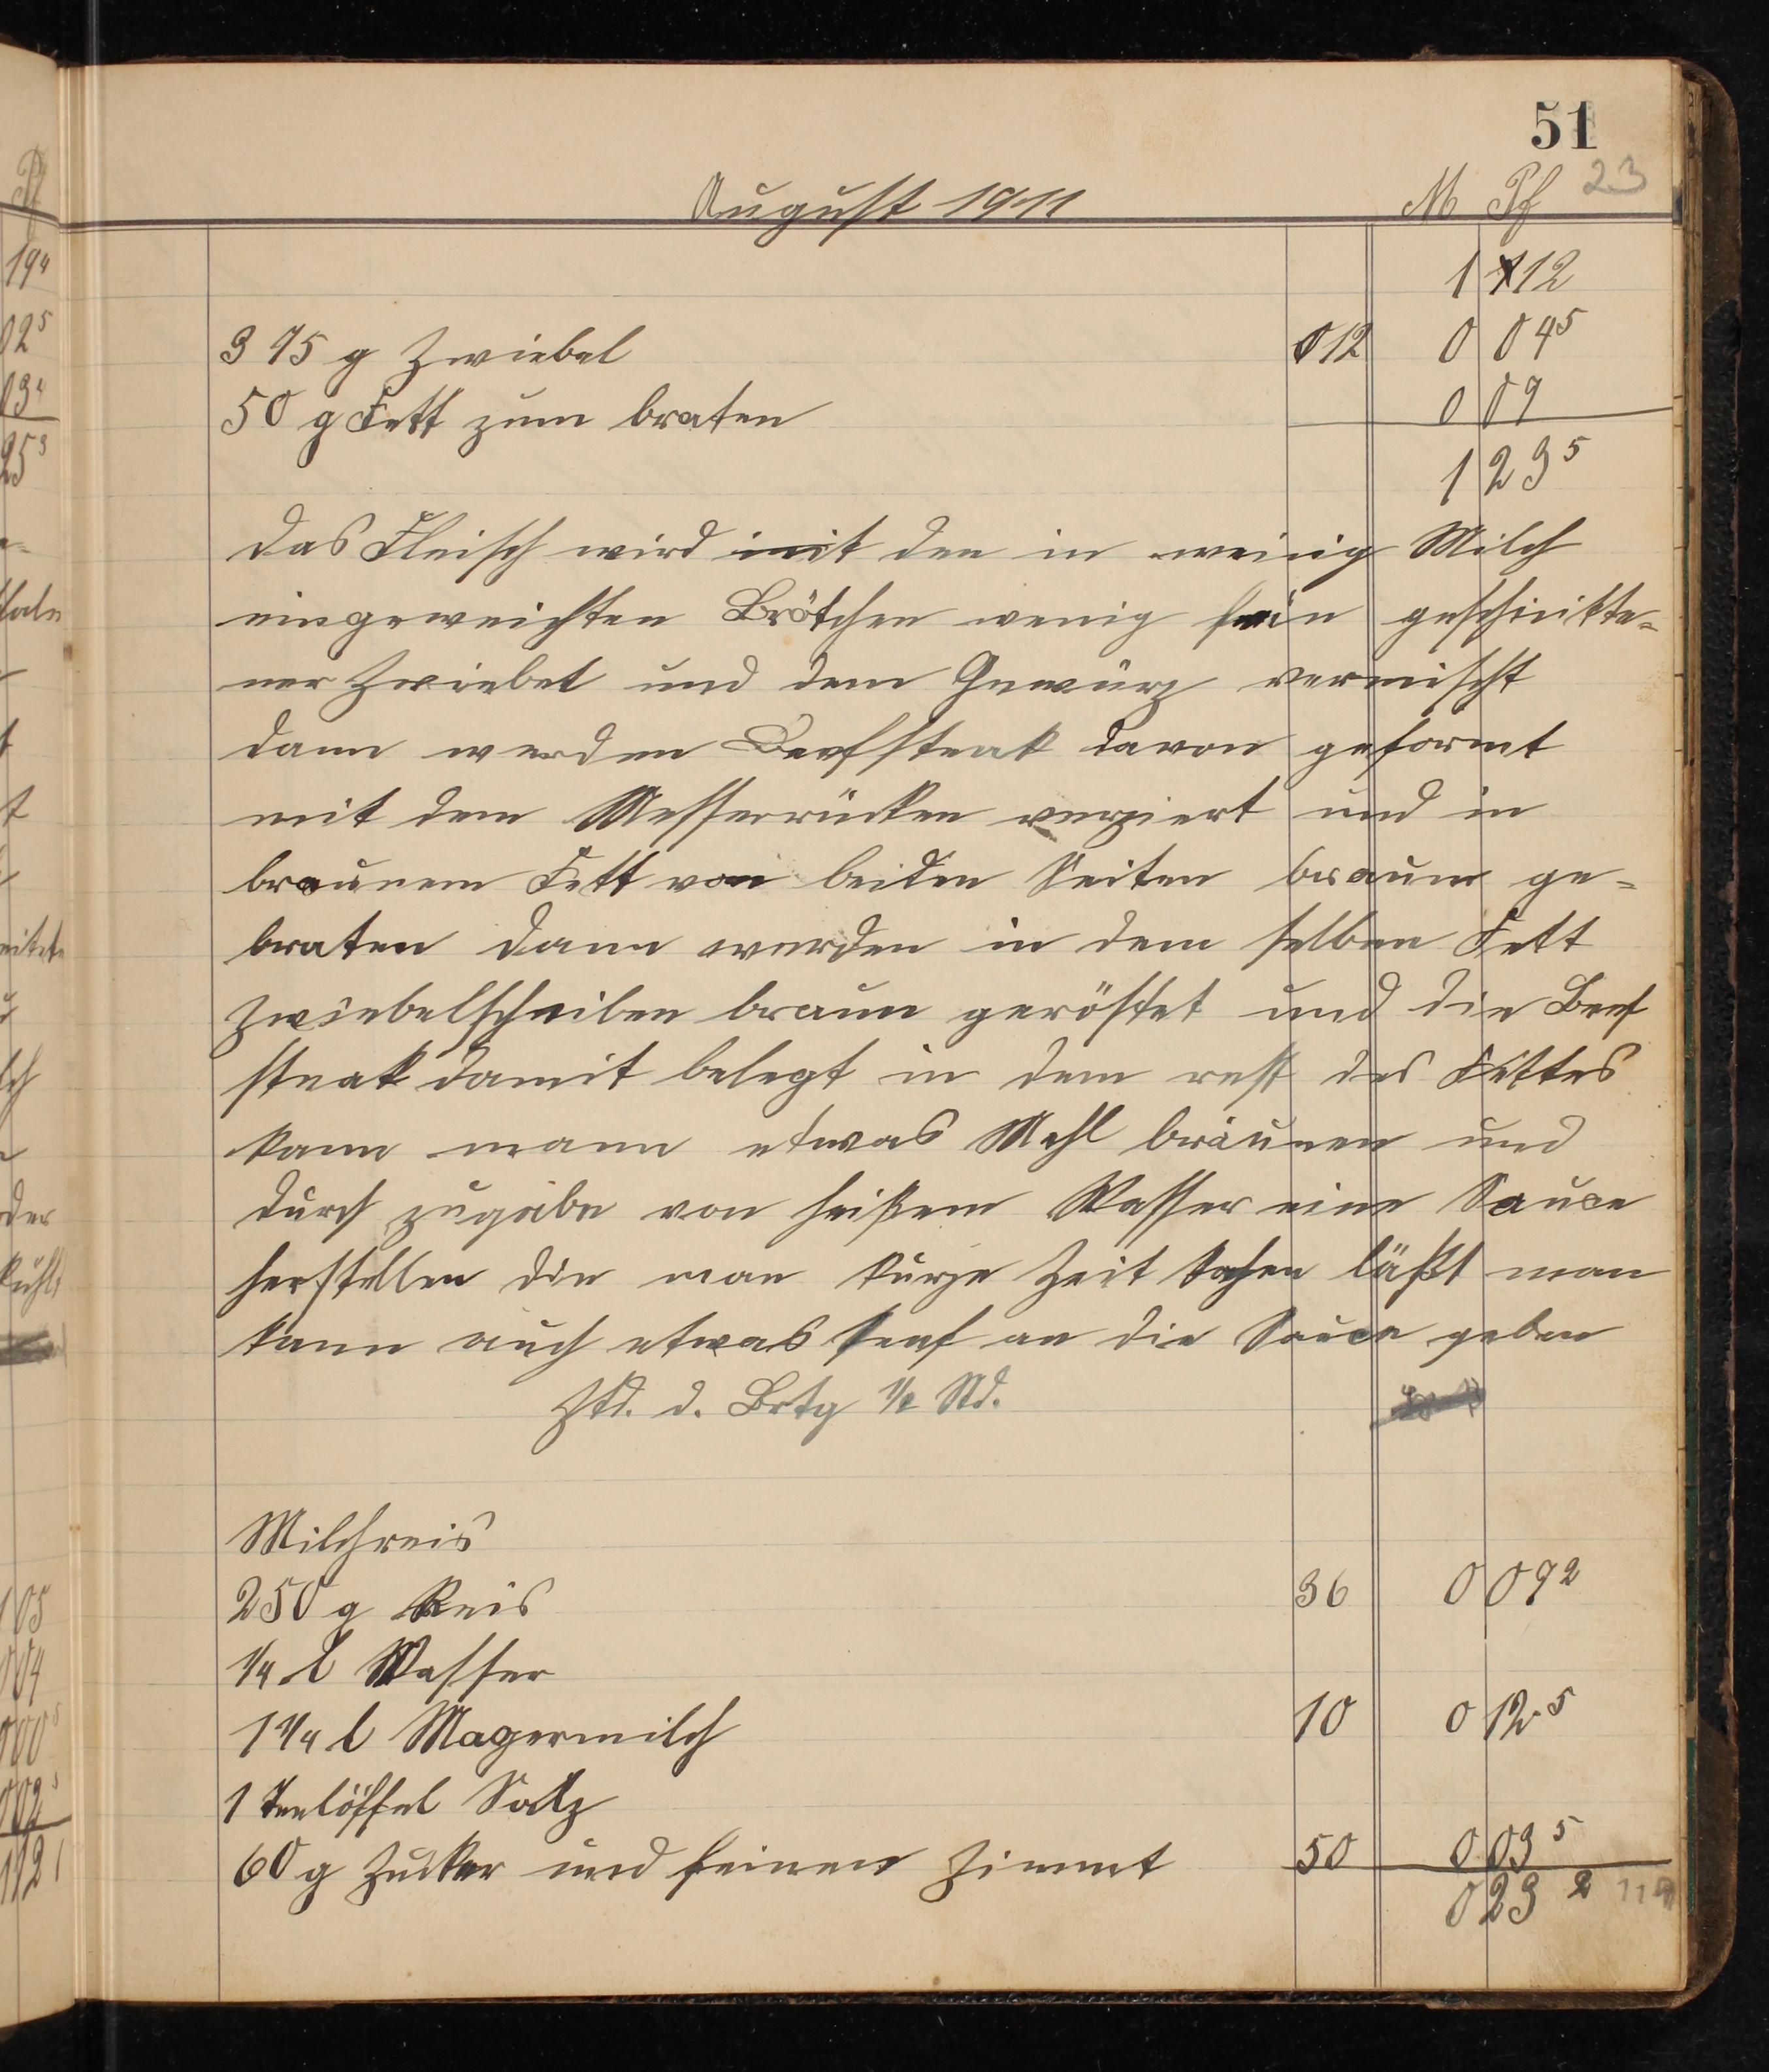 51
August 1911 M Pf 23
1 12
375 g Zwiebel 012 0 04 5
50 g Fett zum braten 0 09
1 23 5
das Fleisch wird mit den in wenig Milch
eingeweichten Brötchen wenig fein geschnitte=
ner Zwiebel und dem Gewürz vermischt
dann werden Beefsteak davon geformt
mit dem Messerrücken verziert und in
braunem Fett von beiden Seiten braun ge=
braten dann werden in dem selben Fett
Zwiebelscheiben braun geröstet und die Beef
steak damit belegt in dem rest des Fettes
kann mann etwas Mehl bräunen und
durch zugabe von heißem Wasser eine Sauce
herstellen die man kurze Zeit kochen läßt man
kann auch etwas Senf an die Sauce geben
Ztd. d. Brtg 1/2 Std.
Milchreis
250 g Reis 36 0 09 2
1/4 l Wasser
1 1/4 l Magermilch 10 0 12 5
1 Teelöffel Salz
60 g Zucker und feinen Zimmt 50 0 03 5
0 23 2